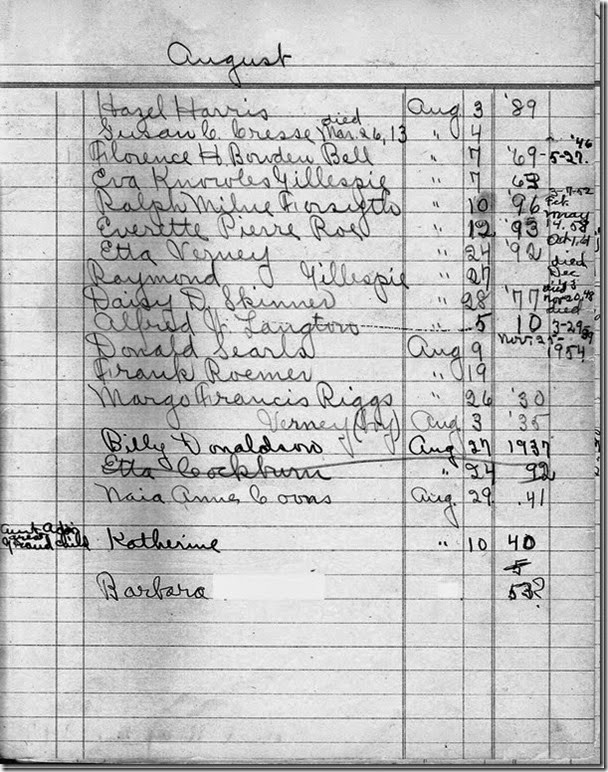 August
Hazel Harris Aug 3 '89
Susan C Cresse died Mar. 26, 13 " 4
Florence H. Bowden Bell " 7 '69 - 5-27-'46
Eva Knowles Gillespie " 7 63
Ralph Milne Forsyth " 10 96 3-7-52
Everette Pierre Roe " 12 '93 May 14, 58
Etta Verney " 24 '92 Oct 1,
Raymond Gillespie " 27 died Dec
Daisy D. Skinner " 28 '77 died Nov 20, 48
Alfred Langtow " 5 10 died 3-29-59
Donald Searls Aug 9 Nov. 25- 1954
Frank Roemer " 19
Margo Francis Riggs " 26 '30
Verney (Joy) Aug 3 '35
Billy Donaldson Aug 27 1937
Etta Cockburn " 24 92
Naia Anne Coons Aug. 29 .41
Aunt great grand child Katherine " 10 40
5
Barbara 53?